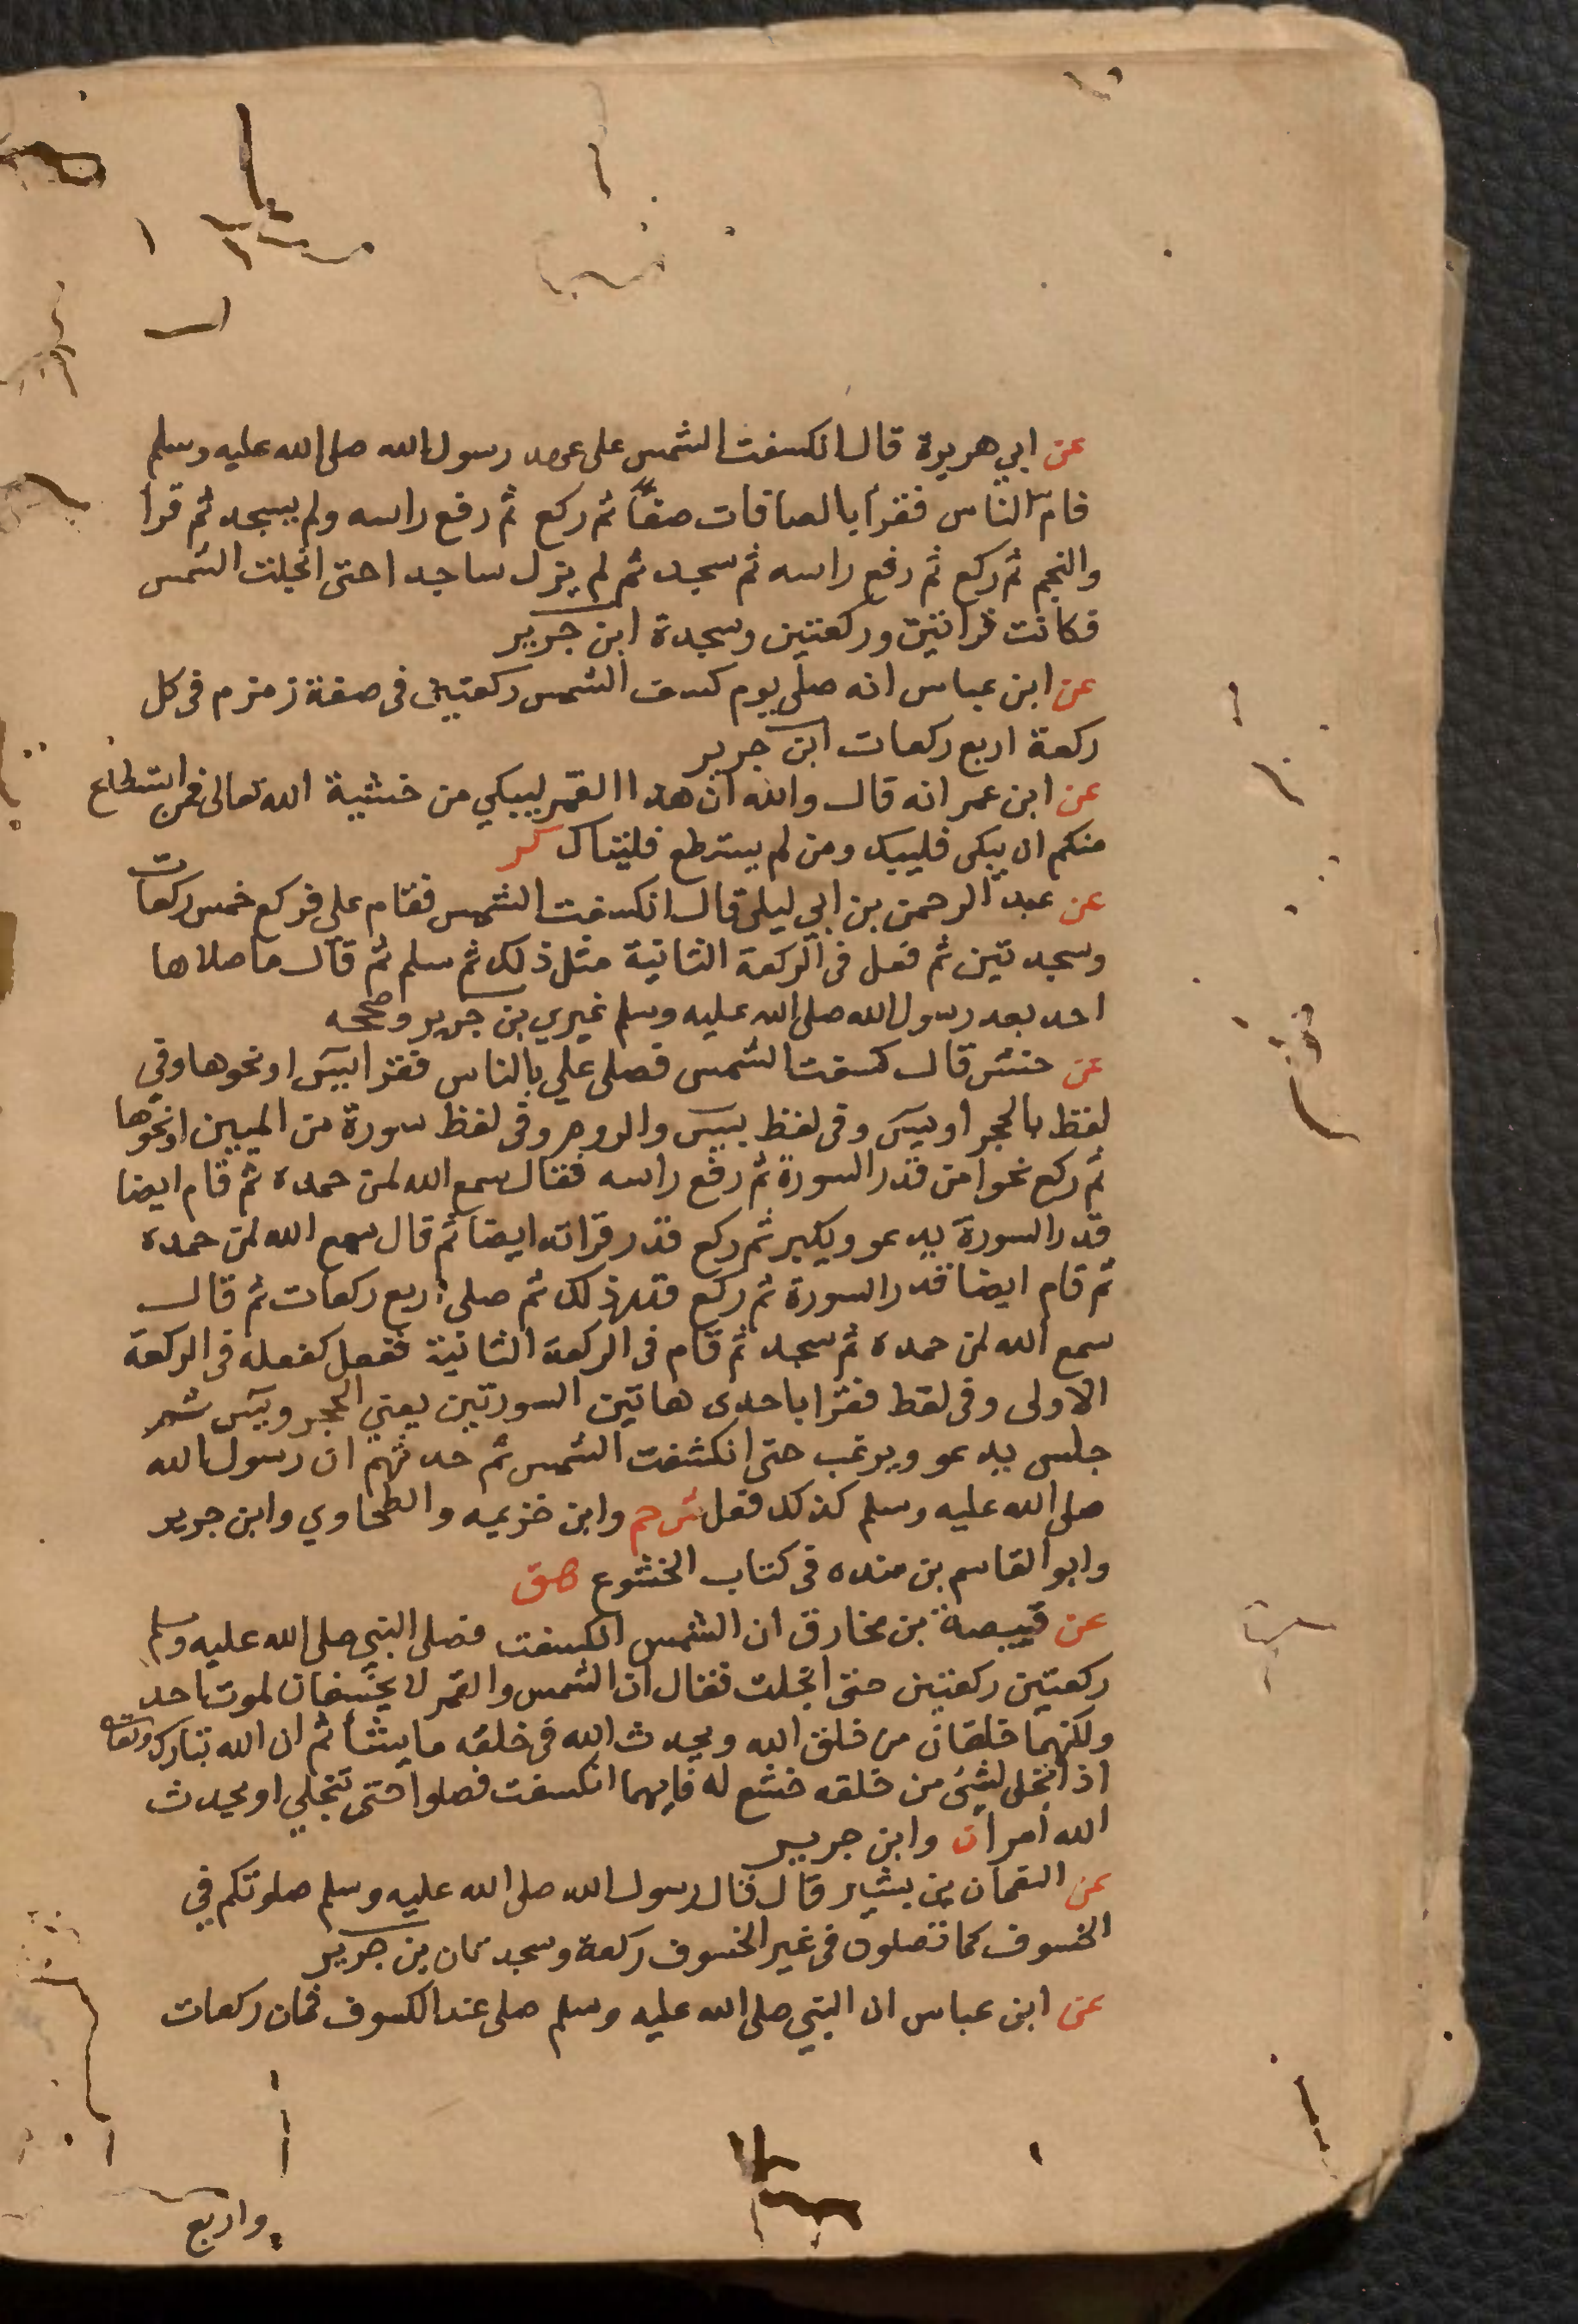 عن ابي هريرة قال انكسفت الشمس على عهد رسول الله صلى الله عليه وسلم
فام الناس فقرأ بالصافات صفًّا ثم ركع ثم رفع راسه ولم يسجد ثم قرا
والنجم ثم ركع ثم رفع راسه ثم سجد ثم لم يزل ساجدا حتى انجلت الشمس
فكانت قراتين وركعتين وسجدة ابن جرير
عن ابن عباس انه صلى يوم كسفت الشمس ركعتين فى صفة زمزم فى كل
ركعة اربع ركعات ابن جرير
عن ابن عمر انه قال والله ان هذا القمر ليبكي من خشية الله تعالى فمن استطاع
منكم ان يبكى فليبك ومن لم يستطع فليتباك كر
عن عبد الرحمن بن ابي ليلى قال انكسفت الشمس فقام على فركع خمس ركعات
وسجدتين ثم فعل فى الركعة الثانية مثل ذلك ثم سلم ثم قال ما صلاها
احد بعد رسول الله صلى الله عليه وسلم غيري بن جرير وصححه
عن حنش قال كسفت الشمس فصلى علي بالناس فقرا بيس او نحوها وفي
لفظ بالحجر او يس وفى لفظ بيس والروم وفى لفظ سورة من الميين او نحوها
ثم ركع نحوا من قدر السورة ثم رفع راسه فقال سمع الله لمن حمده ثم قام ايضا
قدر السورة يدعو ويكبر ثم ركع قدر قراته ايضا ثم قال سمع الله لمن حمده
ثم قام ايضا قدر السورة ثم ركع قدر ذلك ثم صلى اربع ركعات ثم قال
سمع الله لمن حمده ثم سجد ثم قام فى الركعة الثانية ففعل كفعله فى الركعة
الاولى وفى لفظ فقرا باحدى هاتين السورتين يعني الحجر ويس ثم
جلس يدعو ويرغب حتى انكشفت الشمس ثم حدثهم ان رسول الله
صلى الله عليه وسلم كذلك فعل ش حم وابن خزيمه والطحاوي وابن جرير
وابو القاسم بن منده فى كتاب الخشوع هق
عن قبيصة بن مخارق ان الشمس انكسفت فصلى النبي صلى الله عليه وسلم
ركعتين ركعتين حتى انجلت فقال ان الشمس والقمر لا يخسفان لموت احد
ولكنهما خلقان من خلق الله ويحدث الله فى خلقه ما يشأ ثم ان الله تبارك وتعا
اذا تجلى لشئ من خلقه خشع له فايهما انكسفت فصلوا حتى تنجلي او يحدث
الله أمرا ن وابن جرير
عن النعمان بن بشير قال قال رسول الله صلى الله عليه وسلم صلوتكم في
الخسوف كما تصلون فى غير الخسوف ركعة وسجدتان بن جرير
عن ابن عباس ان النبي صلى الله عليه وسلم صلى عند الكسوف ثمان ركعات
واربع